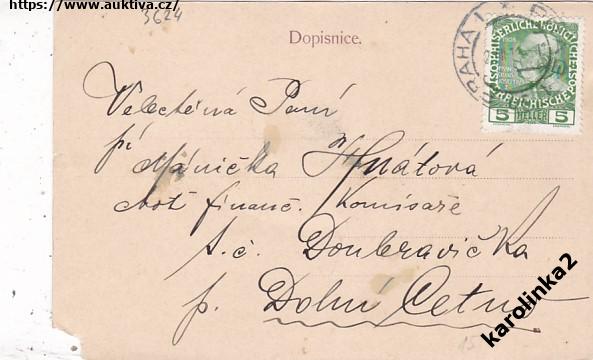 https://www.auktiva.cz/
3624
Dopisnice.
PRAHA 1
KAISERLICHE KÖNIGLICHE ÖSTERREICHISCHE POST
5 HELLER 5
Velectěná Paní
pí
Mánička Hnátová
choť financ. Komisaře
s.č. Doubravička
p. Dolní Cetno
karolinka2